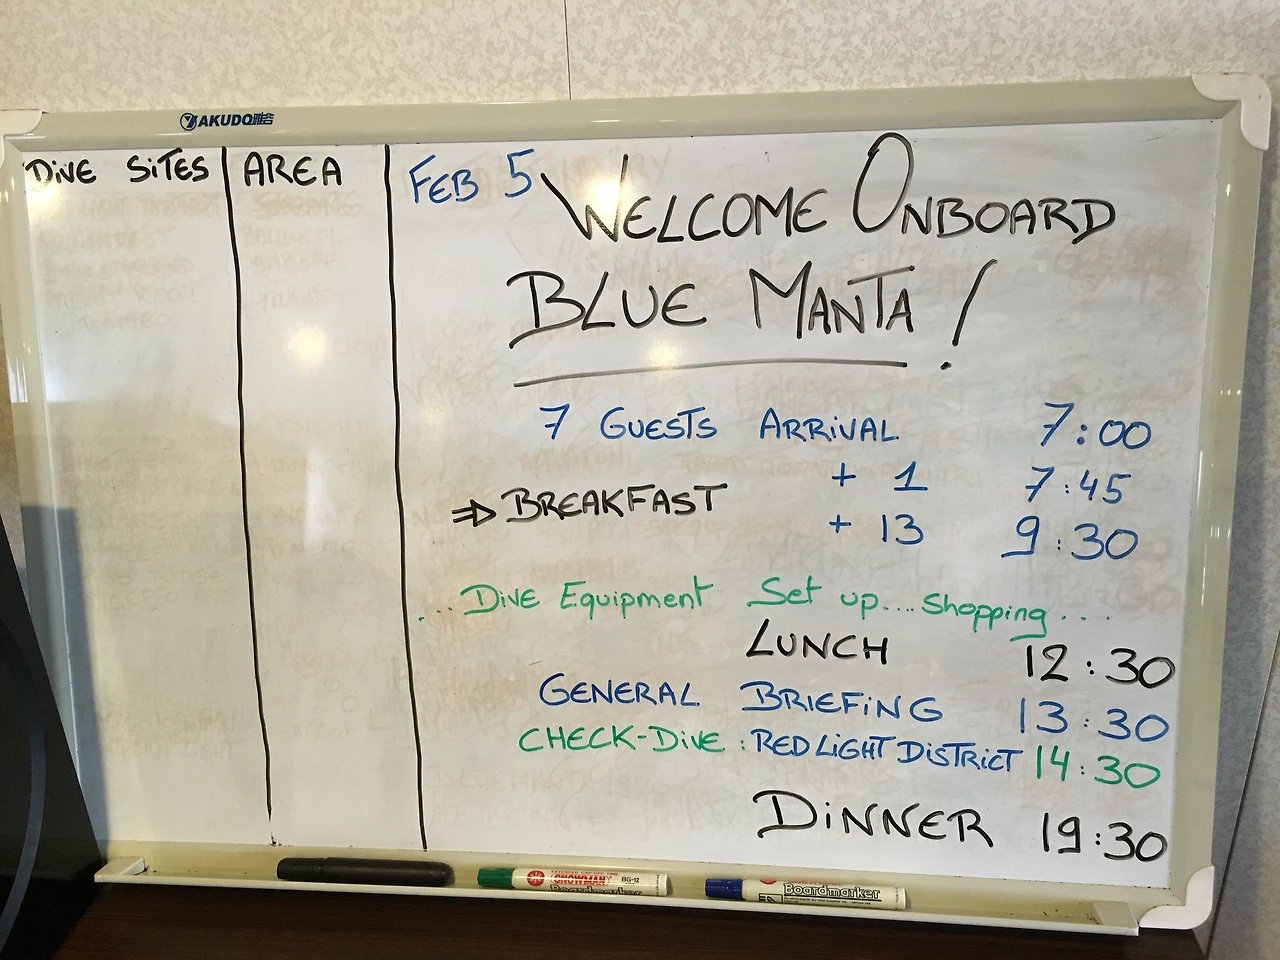 YAKUDO雅谷
DiVE SiTES
AREA
FEB 5
WELCOME ONBOARD
BLUE MANTA!
7 GUESTS ARRiVAL 7:00
+ 1 7:45
⇒ BREAKFAST
+ 13 9:30
... DiVE Equipment Set up.... Shopping ...
LUNCH 12:30
GENERAL BRiEFiNG 13:30
CHECK-DiVE : RED LiGHT DiSTRiCT 14:30
DiNNER 19:30
SNOWMAN BG-12
Boardmarker
Boardmarker